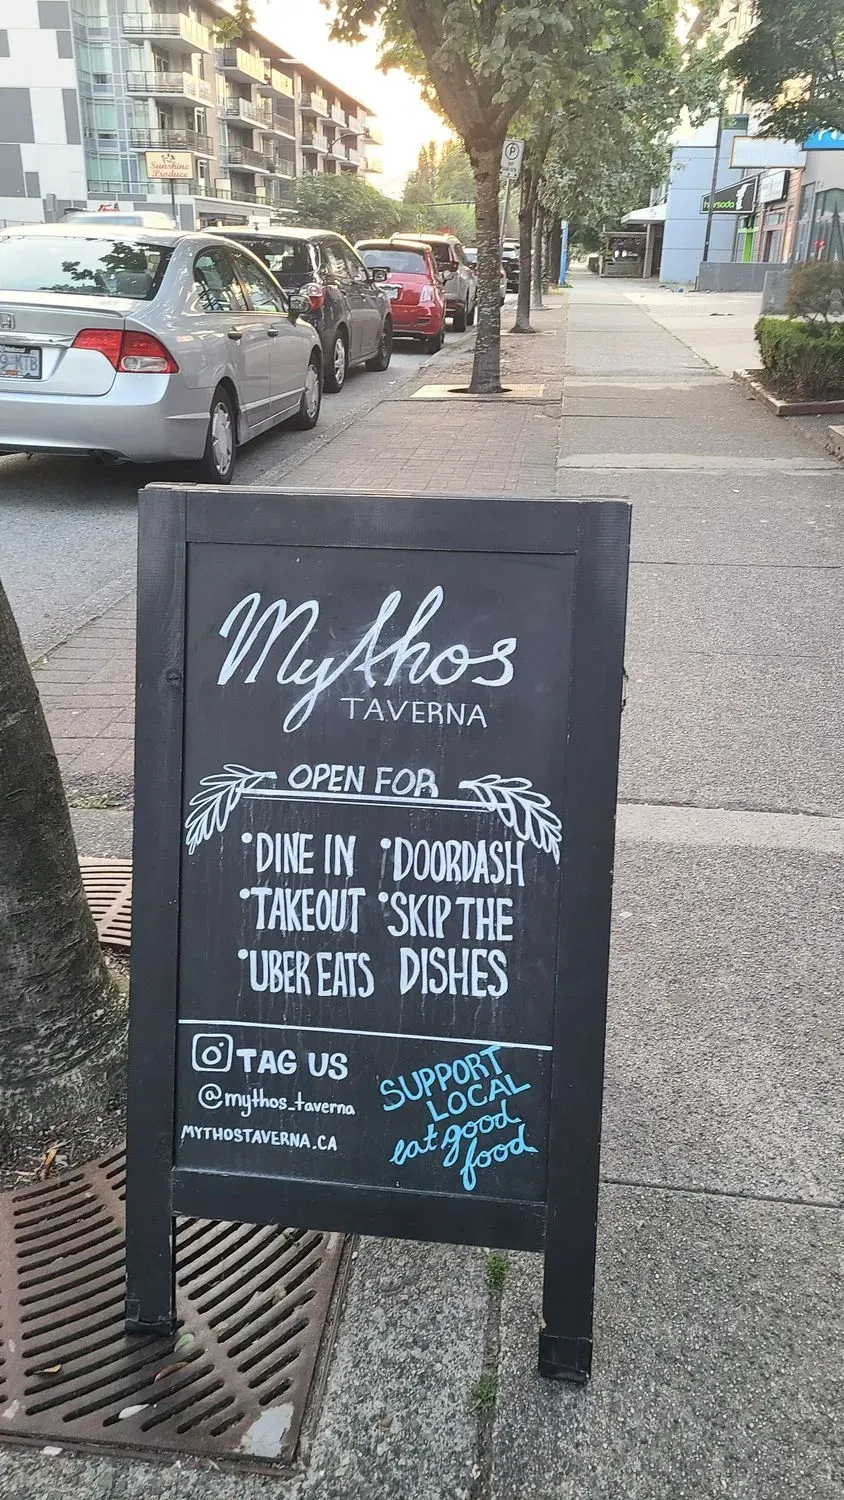 Sunshine
Produce
P
hersoda
Mythos
TAVERNA
OPEN FOR
•DINE IN •DOORDASH
•TAKEOUT •SKIP THE
•UBER EATS DISHES
TAG US
@mythos_taverna
MYTHOSTAVERNA.CA
SUPPORT
LOCAL
eat good
food